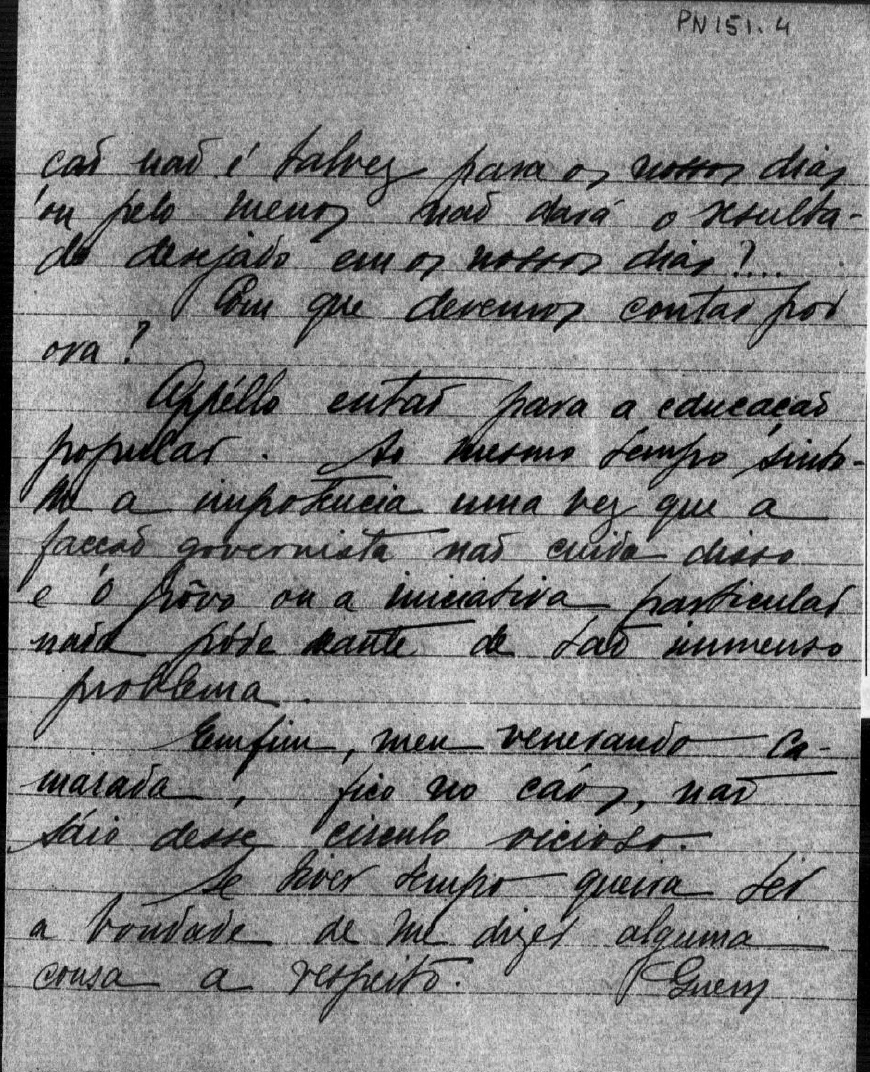 PN151.4
cão não é talvez para os nossos dias
ou pelo menos não dará o resulta-
do desejado em os nossos dias?...
Com que devemos contar por
ora?
Appéllo então para a educação
popular. Ao mesmo tempo sinto-
me a impotencia uma vez que a
facção governista não cuida disso
e o pôvo ou a iniciativa particular
nada póde deante de tão immenso
problema.
Emfim, meu venerando ca-
marada, fico no cáos, não
sáio desse circulo vicioso.
Se tiver tempo queira ter
a bondade de me dizer alguma
cousa a respeito.